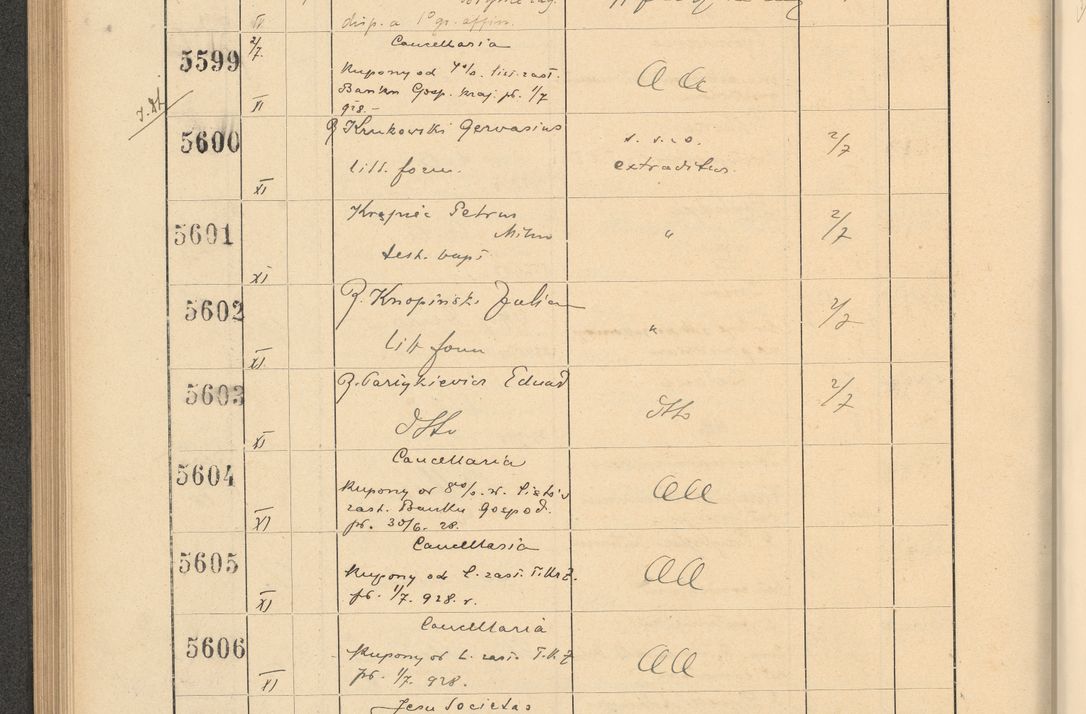 disp. a 1° gr. affin.
5599 2/7 Cancellaria
Kupony od 4% list. zast. aa
Banku Gosp. Kraj. pł. 1/7
XI 928.-
5600 R Krukowski Gervasius s. s. r. o. 2/7
litt. form. extraditus.
XI
5601 Petrus " 2/7
test. bapt
XI
5602 R. Knopiński Julian " 2/7
litt form
XI
5603 R. Eduard 2/7
dtto dtto
XI
5604 Cancellaria
Kupony od 8% listów aa
zast. Banku Gospod.
XI pł. 30/6. 28.
5605 Cancellaria
Kupony od L. zast. T.Kr.Z. aa
XI pł. 1/7. 928. r.
5606 Cancellaria
Kupony od L. zast. T.K.Z aa
XI pł. 1/7. 928.
Jesu Societas